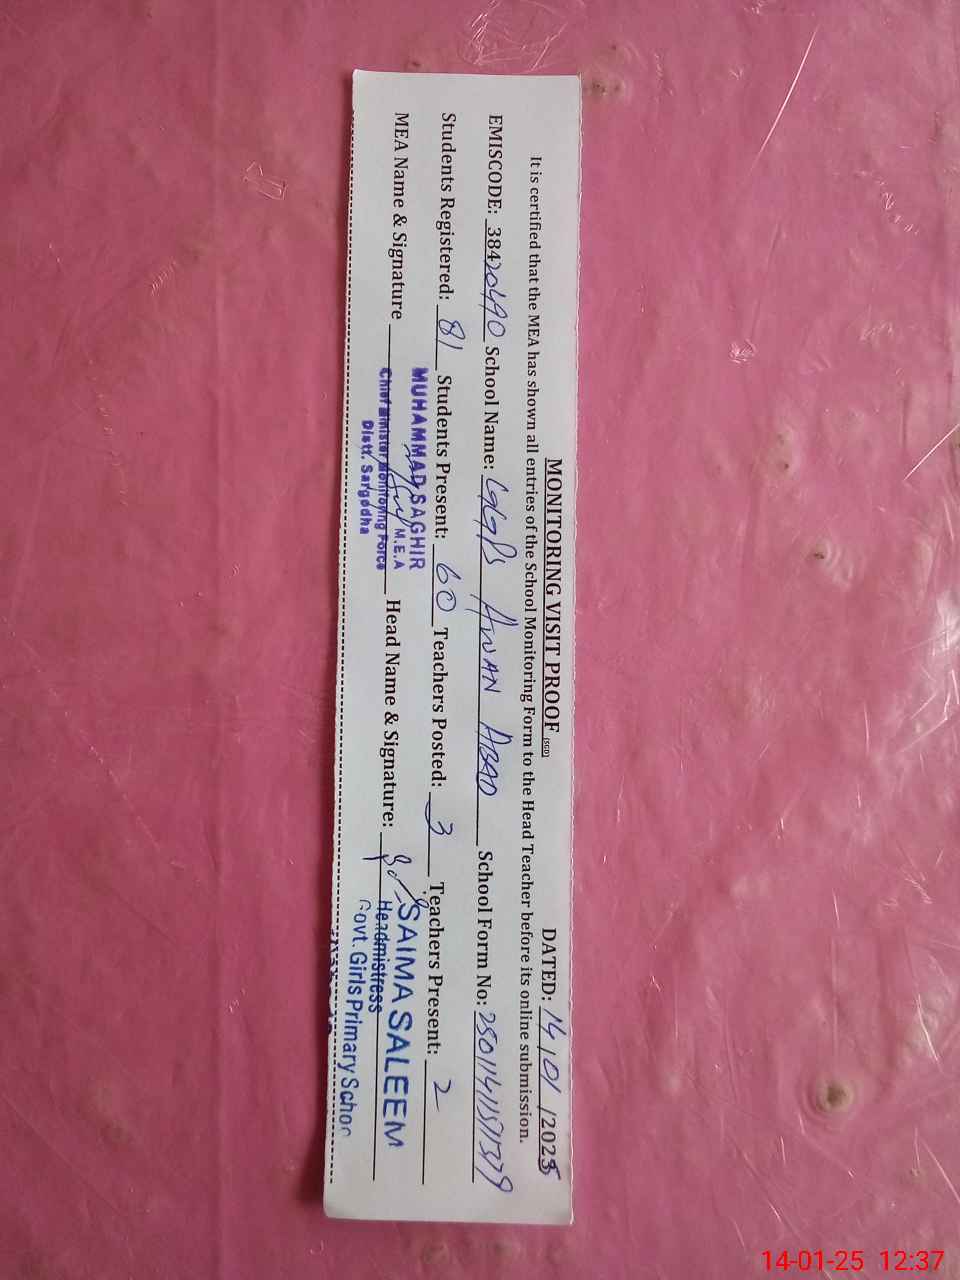 MONITORING VISIT PROOF (SGD) DATED: 14/01/2025
It is certified that the MEA has shown all entries of the School Monitoring Form to the Head Teacher before its online submission.
EMISCODE: 38420490 School Name: GGPS AWAN ABAD School Form No:
Students Registered: 81 Students Present: 60 Teachers Posted: 3 Teachers Present: 2
MEA Name & Signature Head Name & Signature:
MUHAMMAD SAGHIR
M.E.A
Chief Minister Monitoring Force
Distt. Sargodha
SAIMA SALEEM
Headmistress
Govt. Girls Primary Schoo
14-01-25 12:37